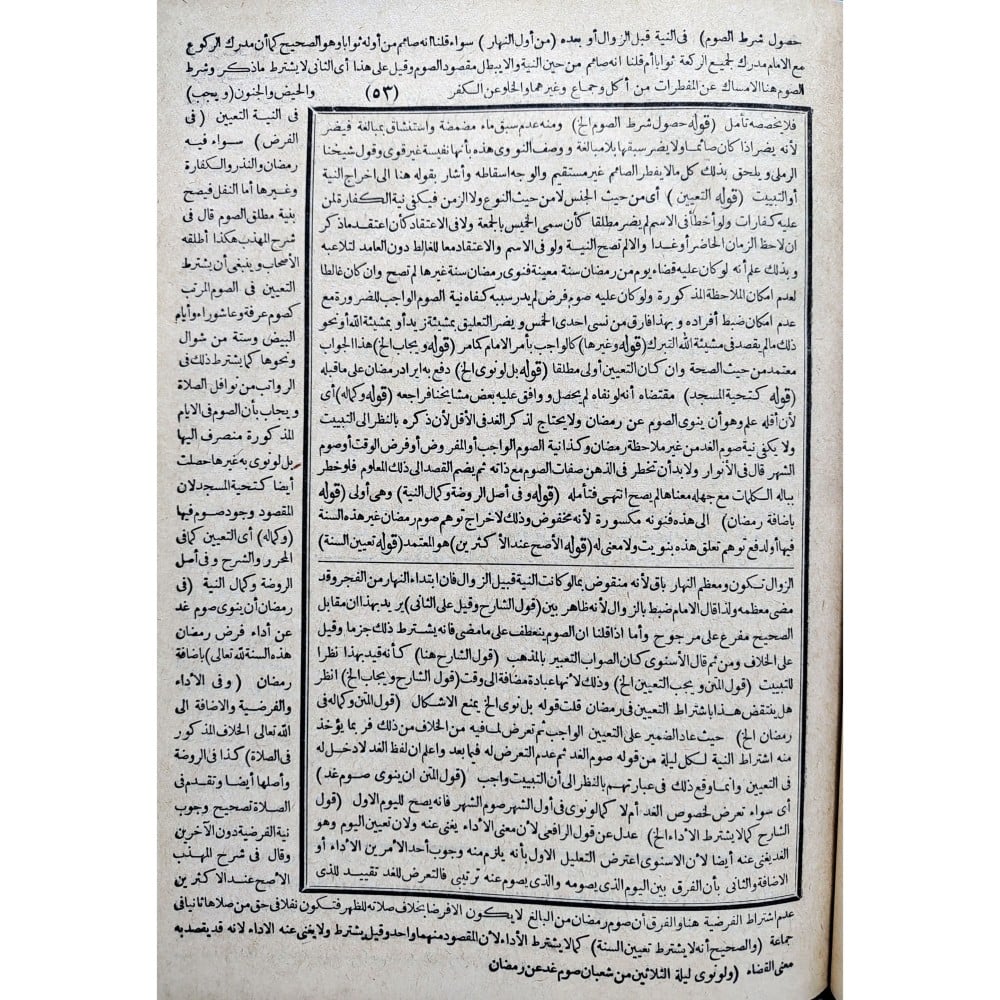 حصول شرط الصوم) فى النية قبل الزوال أو بعده (من أول النهار) سواء قلنا انه صائم من أوله ثوابا وهو الصحيح كما أن مدرك الركوع
مع الامام مدرك لجميع الركعة ثوابا أم قلنا انه صائم من حين النية والا يبطل مقصود الصوم وقيل على هذا أى الثانى لا يشترط ماذكر وشرط
الصوم هنا الامساك عن المفطرات من أكل وجماع وغيرهما والخلو عن الكفر (٥٣) والحيض والجنون (ويجب)
فى النية التعيين (فى
الفرض) سواء فيه
رمضان والنذر والكفارة
وغيرها أما النفل فيصح
بنية مطلق الصوم قال فى
شرح المهذب هكذا أطلقه
الأصحاب وينبغى أن يشترط
التعيين فى الصوم المرتب
كصوم عرفة وعاشوراء وأيام
البيض وستة من شوال
ونحوها كما يشترط ذلك فى
الرواتب من نوافل الصلاة
ويجاب بأن الصوم فى الايام
المذكورة منصرف اليها
بل لو نوى به غيرها حصلت
أيضا كتحية المسجد لان
المقصود وجود صوم فيها
(وكماله) أى التعيين كما فى
المحرر والشرح وفى أصل
الروضة وكمال النية (فى
رمضان أن ينوى صوم غد
عن أداء فرض رمضان
هذه السنة لله تعالى) باضافة
رمضان (وفى الأداء
والفرضية والاضافة الى
الله تعالى الخلاف المذكور
فى الصلاة) كذا فى الروضة
وأصلها أيضا وتقدم فى
الصلاة تصحيح وجوب
نية الفرضية دون الآخرين
وقال فى شرح المهذب
الأصح عند الاكثرين
فلا يخصصه تأمل (قوله حصول شرط الصوم الخ) ومنه عدم سبق ماء مضمضة واستنشاق بمبالغة فيضر
لأنه يضر اذا كان صائما ولا يضر سبقها بلا مبالغة ووصف النووى هذه بأنها نفيسة غير قوى وقول شيخنا
الرملى ويلحق بذلك كل ما لا يفطر الصائم غير مستقيم والوجه اسقاطه وأشار بقوله هنا الى اخراج النية
أو التبييت (قوله التعيين) أى من حيث الجنس لا من حيث النوع ولا الزمن فيكفى نية الكفارة لمن
عليه كفارات ولو أخطأ فى الاسم لم يضر مطلقا كأن سمى الخميس بالجمعة ولا فى الاعتقاد كأن اعتقد ماذكر
ان لاحظ الزمان الحاضر أو غدا والا لم تصح النية ولو فى الاسم والاعتقاد معا للغالط دون العامد لتلاعبه
وبذلك علم أنه لو كان عليه قضاء يوم من رمضان سنة معينة فنوى رمضان سنة غيرها لم تصح وان كان غالطا
لعدم امكان الملاحظة المذكورة ولو كان عليه صوم فرض لم يدر سببه كفاه نية الصوم الواجب للضرورة مع
عدم امكان ضبط أفراده وبهذا فارق من نسى احدى الخمس ويضر التعليق بمشيئة زيد أو بمشيئة الله أو نحو
ذلك ما لم يقصد فى مشيئة الله التبرك (قوله وغيرها) كالواجب بأمر الامام كما مر (قوله ويجاب الخ) هذا الجواب
معتمد من حيث الصحة وان كان التعيين أولى مطلقا (قوله بل لو نوى الخ) دفع به ايراد رمضان على ماقبله
(قوله كتحية المسجد) مقتضاه أنه لو نفاه لم يحصل ووافق عليه بعض مشايخنا فراجعه (قوله وكماله) أى
لأن أقله علم وهو أن ينوى الصوم عن رمضان ولا يحتاج لذكر الغد فى الأقل لأن ذكره بالنظر الى التبييت
ولا يكفى نية صوم الغد من غير ملاحظة رمضان وكذا نية الصوم الواجب أو المفروض أو فرض الوقت أو صوم
الشهر قال فى الأنوار ولا بد أن تخطر فى الذهن صفات الصوم مع ذاته ثم يضم القصد الى ذلك المعلوم فلو خطر
بباله الكلمات مع جهله معناها لم يصح انتهى فتأمله (قوله وفى أصل الروضة وكمال النية) وهى أولى (قوله
باضافة رمضان) الى هذه فنونه مكسورة لأنه مخفوض وذلك لاخراج توهم صوم رمضان غير هذه السنة
فيها أو لدفع توهم تعلق هذه بنويت ولا معنى له (قوله الأصح عند الأكثرين) هو المعتمد (قوله تعيين السنة)
الزوال تكون ومعظم النهار باق لأنه منقوض بما لو كانت النية قبيل الزوال فان ابتداء النهار من الفجر وقد
مضى معظمه ولذا قال الامام ضبط بالزوال لأنه ظاهر بين (قول الشارح وقيل على الثانى) يريد بهذا ان مقابل
الصحيح مفرع على مرجوح وأما اذا قلنا ان الصوم ينعطف على ما مضى فانه يشترط ذلك جزما وقيل
على الخلاف ومن ثم قال الأسنوى كان الصواب التعبير بالمذهب (قول الشارح هنا) كأنه قيد بهذا نظرا
للتبييت (قول المتن ويجب التعيين الخ) وذلك لأنها عبادة مضافة الى وقت (قول الشارح ويجاب الخ) انظر
هل ينتقض هذا باشتراط التعيين فى رمضان قلت قوله بل نوى الخ يمنع الاشكال (قول المتن وكماله فى
رمضان الخ) حيث عاد الضمير على التعيين الواجب ثم تعرض لما فيه من الخلاف من ذلك فربما يؤخذ
منه اشتراط النية لكل ليلة من قوله صوم الغد ثم عدم التعرض له فيما بعد واعلم ان لفظ الغد لا دخل له
فى التعيين وانما وقع ذلك فى عبارتهم بالنظر الى أن التبييت واجب (قول المتن ان ينوى صوم غد)
أى سواء تعرض لخصوص الغد أم لا كما لو نوى فى أول الشهر صوم الشهر فانه يصح لليوم الاول (قول
الشارح كما لا يشترط الأداء الخ) عدل عن قول الرافعى لأن معنى الأداء يغنى عنه ولان تعيين اليوم وهو
الغد يغنى عنه أيضا لأن الاسنوى اعترض التعليل الاول بأنه يلزم منه وجوب أحد الأمرين الأداء أو
الاضافة والثانى بأن الفرق بين اليوم الذى يصومه والذى يصوم عنه ترتيبى فالتعرض للغد تقييد للذى
عدم اشتراط الفرضية هنا والفرق أن صوم رمضان من البالغ لا يكون الا فرضا بخلاف صلاته للظهر فتكون نفلا فى حق من صلاها ثانيا فى
جماعة (والصحيح أنه لا يشترط تعيين السنة) كما لا يشترط الأداء لأن المقصود منهما واحد وقيل يشترط ولا يغنى عنه الاداء لانه قد يقصد به
معنى القضاء (ولو نوى ليلة الثلاثين من شعبان صوم غد عن رمضان